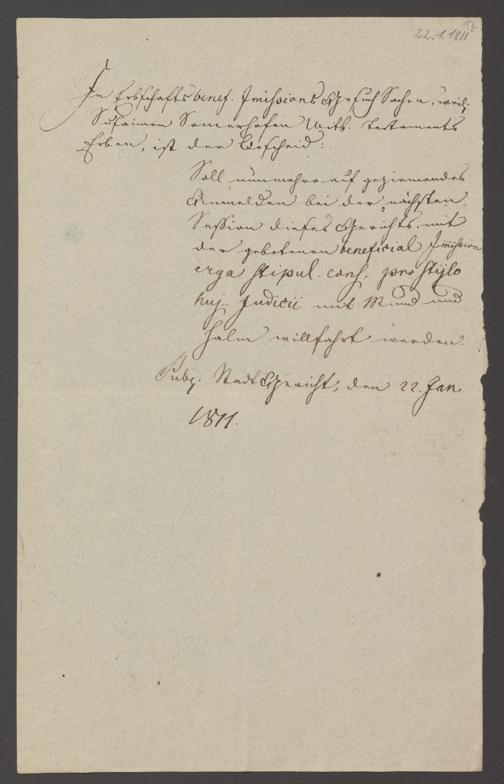 22.1.1811
In Erbschafts benef. Imissions Gesuch Sachen, weil.
Susannen Sommerhofen Wittb. Testaments
Erben, ist der Bescheid:
Soll nunmehro auf geziemendes
Anmelden bei der nächsten
Session dieses Gerichts, mit
der gebetenen beneficial Imission
erga stipul. cons. pro stylo
huj. Judicii mit Mund und
Halm willfahrt werden.
Publ. Stadt Gericht, den 22. Jan.
1811.